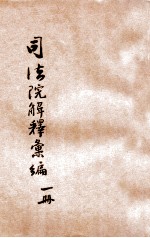 司法院解釋彙編
一冊